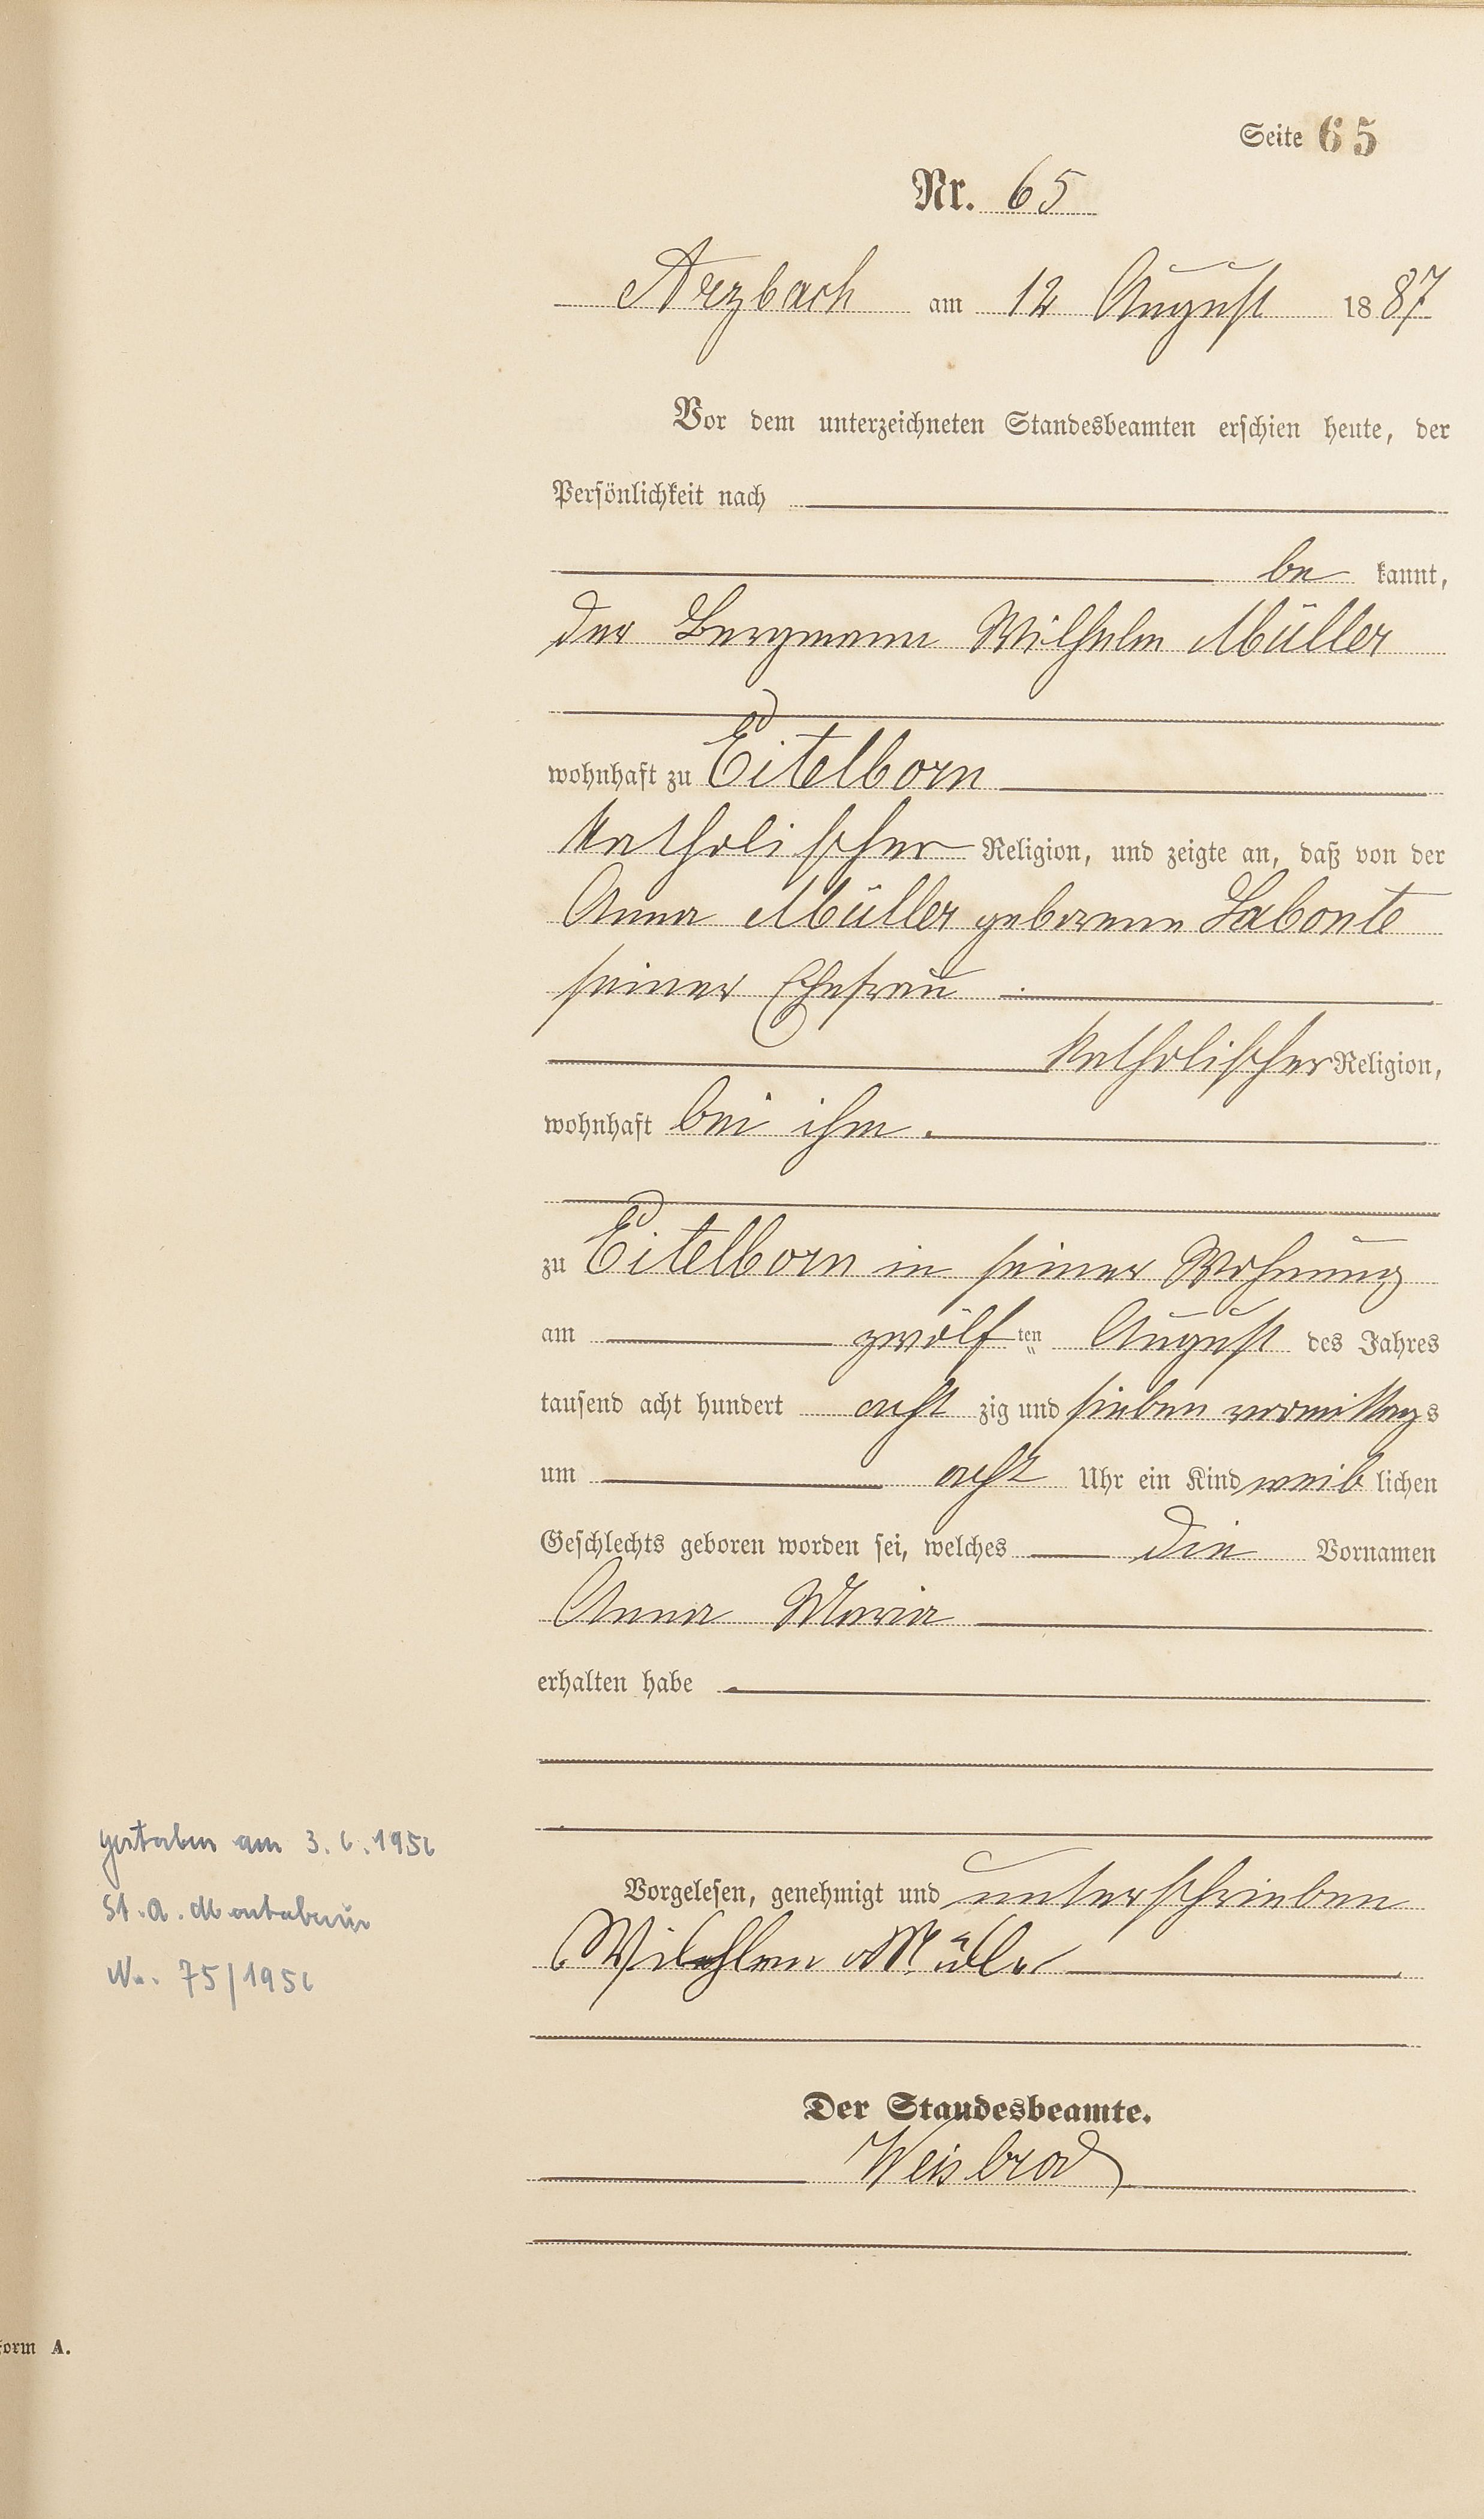 Seite 65
Nr. 65
Arzbach am 12 August 1887
Vor dem unterzeichneten Standesbeamten erschien heute, der
Persönlichkeit nach
be kannt,
der Bergmann Wilhelm Müller
wohnhaft zu Eitelborn
katholischer Religion, und zeigte an, daß von der
Anna Müller geborene Labonte
seiner Ehefrau
katholischer Religion,
wohnhaft bei ihm.
zu Eitelborn in seiner Wohnung
am zwölf ten August des Jahres
tausend acht hundert acht zig und sieben vormittags
um acht Uhr ein Kind weib lichen
Geschlechts geboren worden sei, welches die Vornamen
Anna Maria
erhalten habe
Vorgelesen, genehmigt und unterschrieben
Wilehlem Müller
Der Standesbeamte.
Weisbrod
gestorben am 3.6.1956
St.A. Montabaur
Nr. 75/1956
form A.